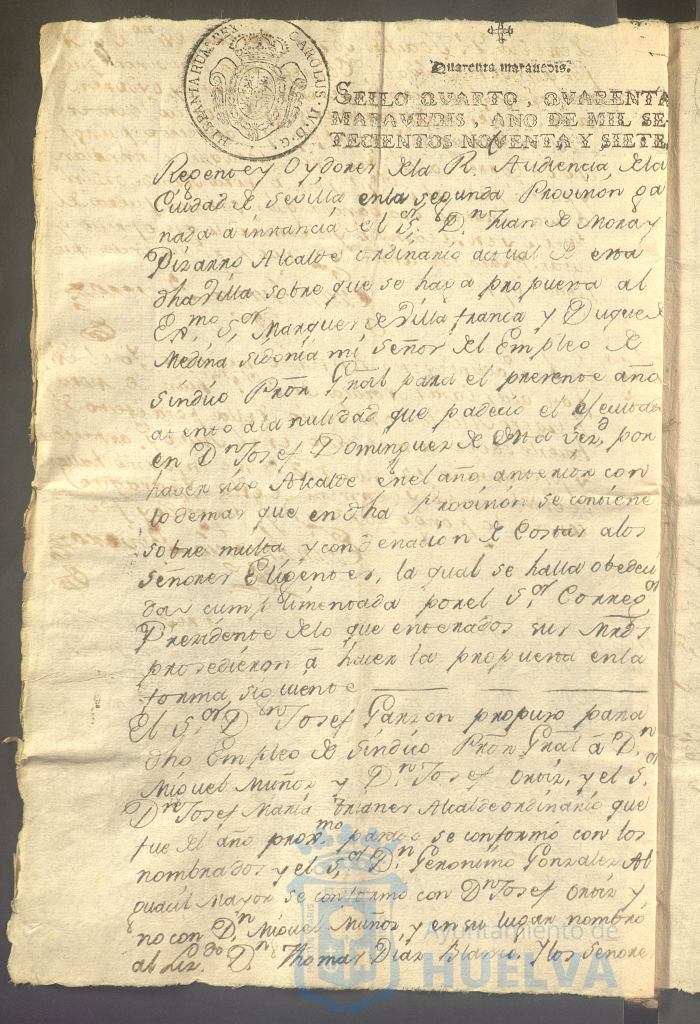 HISPANIARUM REX CAROLUS IV D.G.
Quarenta maravedis.
SELLO QVARTO, QVARENTA
MARAVEDIS, AÑO DE MIL SE-
TECIENTOS NOVENTA Y SIETE.
Regente y Oydores de la R. Audiencia de la
Ciudad de Sevilla en la segunda Provision ga
nada a instancia del S.or D.n Juan de Mora y
Pizarro Alcalde ordinario actual de esta
dha Villa sobre que se haga propuesta al
Ex.mo S.or Marques de Villafranca y Duque de
Medina Sidonia mi Señor del Empleo de
Sindico Prôr Grâl para el presente año
atento a la nulidad que padecio el
en D.n Josef Dominguez de esta vez.d por
haver sido Alcalde en el año anterior con
lo demas que en dha Provision se contiene
sobre multa y condenacion de Costas a los
Señores Eligentes, la qual se halla obedeci
da y cumplimentada por el S.or Correg.or
Presidente de lo que enterados sus Mrds
prosedieron â hacer la propuesta en la
forma siguiente
El S.or D.n Josef Garzon propuso para
dho Empleo de Sindico Prôr Grâl â D.n
Miguel Muñoz y D.n Josef Ortiz, y el S.or
D.n Josef Maria Trianer Alcalde ordinario que
fue el año prox.mo pasado se conformó con los
nombrados y el S.or D.n Geronimo Gonzalez Al
guacil Mayor se conformó con D.n Josef Ortiz y
no con D.n Miguel Muñoz y en su lugar nombró
al Liz.do D.n Thomas Diaz Blanco, Y los Señores
Ayuntamiento de
HUELVA